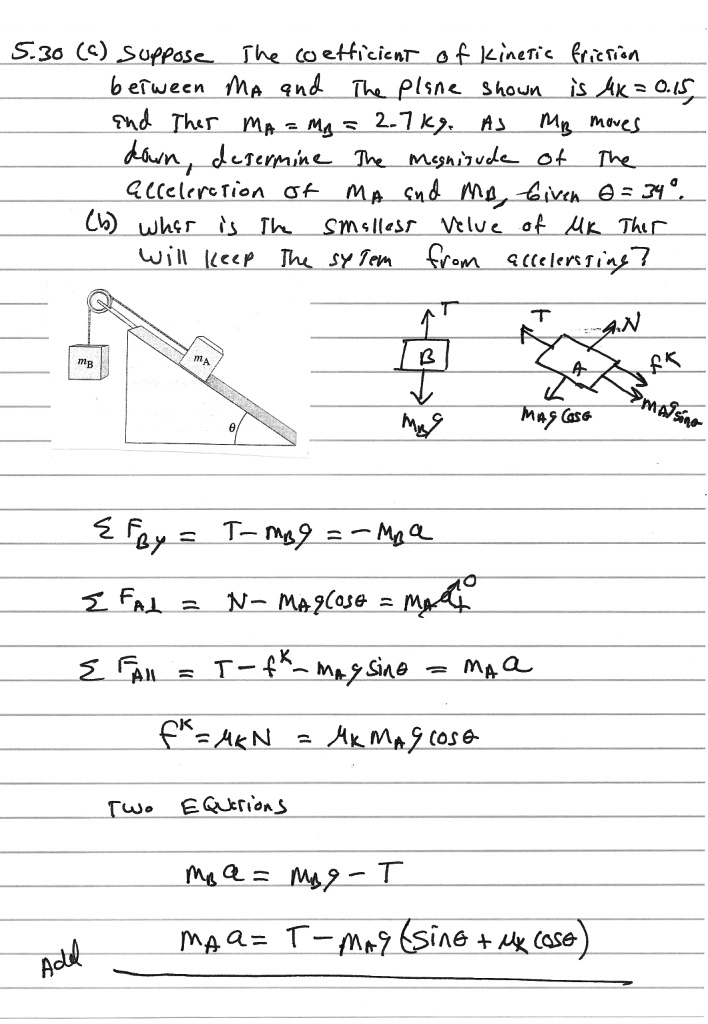 5.30 (a) Suppose The coefficient of kinetic friction
between MA and The plane shown is μK = 0.15,
and That MA = MB = 2.7 kg. As MB moves
down, determine The magnitude of The
acceleration of MA and MB, Given θ = 34°.
(b) what is The smallest value of μK That
will keep The system from accelerating?
mB
mA
θ
T
B
MBg
T
N
A
fK
MAg cosθ
MAg sinθ
Σ FBy = T - mBg = -MBa
Σ FA⊥ = N - MAg cosθ = MA a⊥ 0
Σ FA|| = T - fK - MAg sinθ = MA a
fK = μKN = μK MAg cosθ
Two Equations
MB a = MBg - T
MA a = T - MAg (sinθ + μK cosθ)
Add